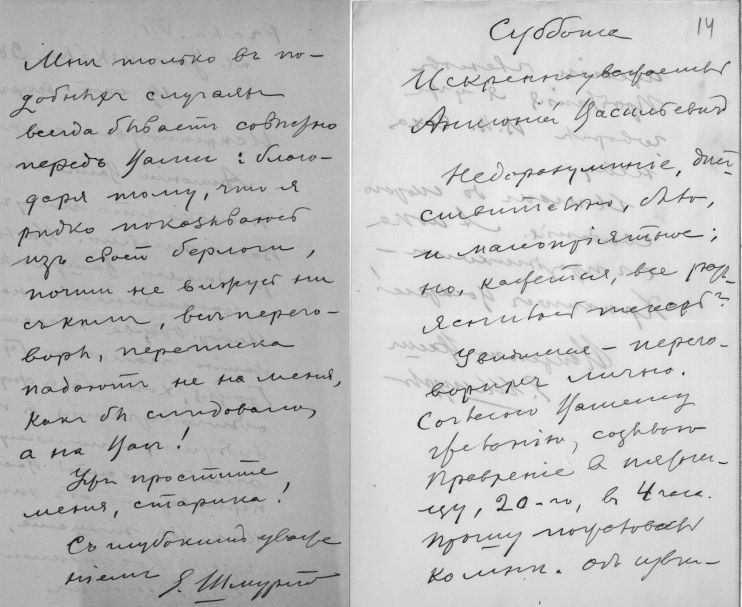 Мнѣ только въ по-
добныхъ случаяхъ
всегда бываетъ совѣстно
передъ Вами: благо-
даря тому, что я
рѣдко показываюсь
изъ своей берлоги,
почти не вижусь ни
съ кѣмъ, всѣ перего-
воры, переписка
падаютъ не на меня,
какъ бы слѣдовало,
а на Васъ!
Ужъ простите
меня, старика!
Съ глубокимъ уваже
ніемъ Е. Шмурло
14
Суббота
Искренноуважаемый
Антоній Васильевич
Недоразумѣніе, дѣй-
ствительно, было,
и малопріятное;
но, кажется, все разъ-
яснилось теперь?
Увидимся – перего-
воримъ лично.
Согласно Вашему
желанію, созываю
Правленіе въ пятни-
цу, 20-го, въ 4 часа.
Прошу пожаловать
ко мнѣ. Объ